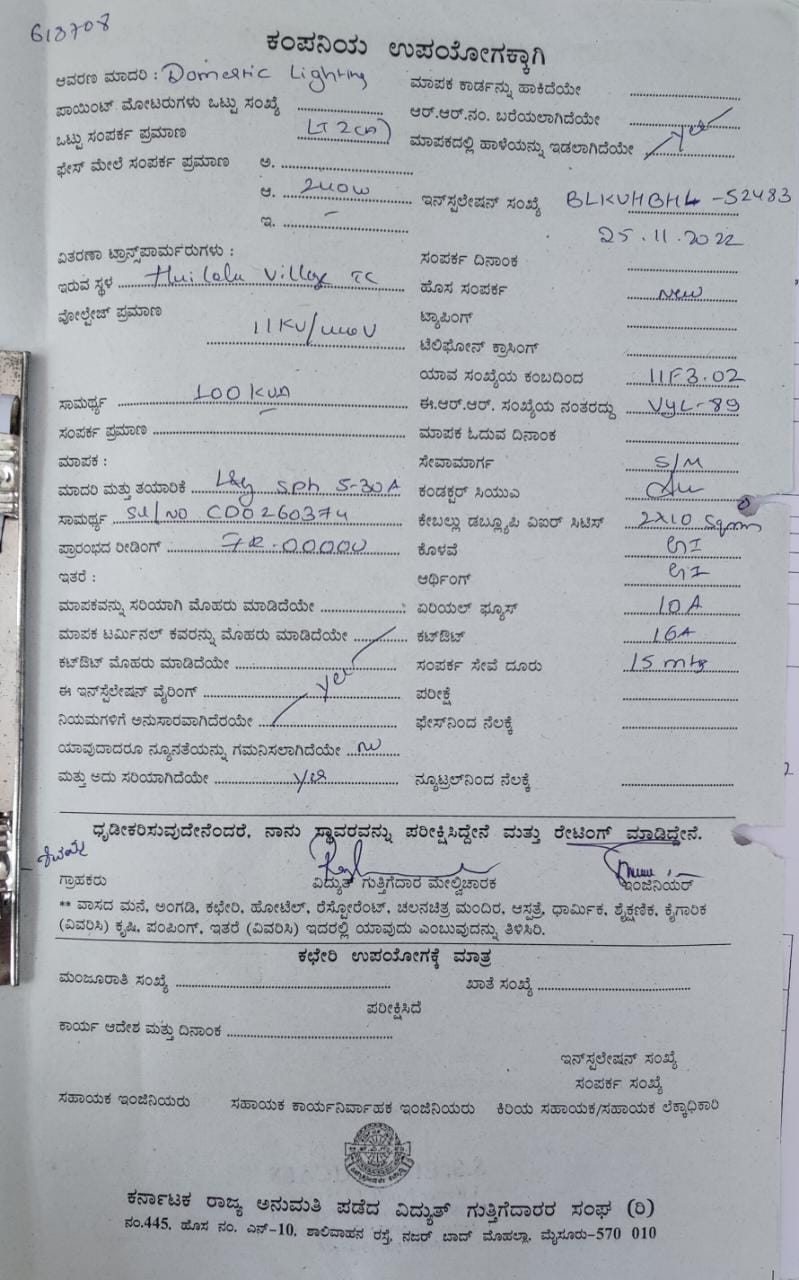 613708
ಕಂಪನಿಯ ಉಪಯೋಗಕ್ಕಾಗಿ
ಆವರಣ ಮಾದರಿ : Domestic Lighting
ಮಾಪಕ ಕಾರ್ಡನ್ನು ಹಾಕಿದೆಯೇ
ಪಾಯಿಂಟ್ ಮೋಟರುಗಳು ಒಟ್ಟು ಸಂಖ್ಯೆ
ಆರ್.ಆರ್.ನಂ. ಬರೆಯಲಾಗಿದೆಯೇ
ಒಟ್ಟು ಸಂಪರ್ಕ ಪ್ರಮಾಣ LT 2(a)
ಮಾಪಕದಲ್ಲಿ ಹಾಳೆಯನ್ನು ಇಡಲಾಗಿದೆಯೇ yes
ಫೇಸ್ ಮೇಲೆ ಸಂಪರ್ಕ ಪ್ರಮಾಣ ಅ.
ಆ. 240w
ಇನ್‌ಸ್ಪಲೇಷನ್ ಸಂಖ್ಯೆ BLKVHBH4 -52483
ಇ. –
25.11.2022
ವಿತರಣಾ ಟ್ರಾನ್ಸ್‌ಪಾರ್ಮರುಗಳು :
ಸಂಪರ್ಕ ದಿನಾಂಕ
ಇರುವ ಸ್ಥಳ Huilalu Village TC
ಹೊಸ ಸಂಪರ್ಕ New
ವೋಲ್ಟೇಜ್ ಪ್ರಮಾಣ 11KV/
ಟ್ಯಾಪಿಂಗ್
ಟೆಲಿಫೋನ್ ಕ್ರಾಸಿಂಗ್
ಯಾವ ಸಂಖ್ಯೆಯ ಕಂಬದಿಂದ 11F3.02
ಸಾಮರ್ಥ್ಯ 100 KVA
ಈ.ಆರ್.ಆರ್. ಸಂಖ್ಯೆಯ ನಂತರದ್ದು VYL-89
ಸಂಪರ್ಕ ಪ್ರಮಾಣ
ಮಾಪಕ ಓದುವ ದಿನಾಂಕ
ಮಾಪಕ :
ಸೇವಾಮಾರ್ಗ S/M
ಮಾದರಿ ಮತ್ತು ತಯಾರಿಕೆ L&g SPh 5-30A
ಕಂಡಕ್ಟರ್ ಸಿಯುಎ
ಸಾಮರ್ಥ್ಯ Sl/NO CD0260374
ಕೇಬಲ್ಲು ಡಬ್ಲ್ಯೂಪಿ ವಿಐರ್ ಸಿಟಿಸ್ 2X10 Sqmm
ಪ್ರಾರಂಭದ ರೀಡಿಂಗ್ FR-00000
ಕೊಳವೆ GI
ಇತರೆ :
ಆರ್ಥಿಂಗ್ GI
ಮಾಪಕವನ್ನು ಸರಿಯಾಗಿ ಮೊಹರು ಮಾಡಿದೆಯೇ
ಏರಿಯಲ್ ಫ್ಯೂಸ್ 10A
ಮಾಪಕ ಟರ್ಮಿನಲ್ ಕವರನ್ನು ಮೊಹರು ಮಾಡಿದೆಯೇ
ಕಟ್‌ಔಟ್ 16A
ಕಟ್‌ಔಟ್ ಮೊಹರು ಮಾಡಿದೆಯೇ
ಸಂಪರ್ಕ ಸೇವೆ ದೂರು 15 mts
ಈ ಇನ್‌ಸ್ಪೆಲೇಷನ್ ವೈರಿಂಗ್ yes
ಪರೀಕ್ಷೆ
ನಿಯಮಗಳಿಗೆ ಅನುಸಾರವಾಗಿದೆರಯೇ
ಫೇಸ್‌ನಿಂದ ನೆಲಕ್ಕೆ
ಯಾವುದಾದರೂ ನ್ಯೂನತೆಯನ್ನು ಗಮನಿಸಲಾಗಿದೆಯೇ no
ಮತ್ತು ಅದು ಸರಿಯಾಗಿದೆಯೇ yes
ನ್ಯೂಟ್ರಲ್‌ನಿಂದ ನೆಲಕ್ಕೆ
ಧೃಡೀಕರಿಸುವುದೇನೆಂದರೆ, ನಾನು ಸ್ಥಾವರವನ್ನು ಪರೀಕ್ಷಿಸಿದ್ದೇನೆ ಮತ್ತು ರೇಟಿಂಗ್ ಮಾಡಿದ್ದೇನೆ.
ಗ್ರಾಹಕರು ವಿದ್ಯುತ್ ಗುತ್ತಿಗೆದಾರ ಮೇಲ್ವಿಚಾರಕ ಇಂಜಿನಿಯರ್
** ವಾಸದ ಮನೆ, ಅಂಗಡಿ, ಕಛೇರಿ, ಹೋಟೆಲ್, ರೆಸ್ಟೋರೆಂಟ್, ಚಲನಚಿತ್ರ ಮಂದಿರ, ಆಸ್ಪತ್ರೆ, ಧಾರ್ಮಿಕ, ಶೈಕ್ಷಣಿಕ, ಕೈಗಾರಿಕ
(ವಿವರಿಸಿ) ಕೃಷಿ, ಪಂಪಿಂಗ್, ಇತರೆ (ವಿವರಿಸಿ) ಇದರಲ್ಲಿ ಯಾವುದು ಎಂಬುವುದನ್ನು ತಿಳಿಸಿರಿ.
ಕಛೇರಿ ಉಪಯೋಗಕ್ಕೆ ಮಾತ್ರ
ಮಂಜೂರಾತಿ ಸಂಖ್ಯೆ ಖಾತೆ ಸಂಖ್ಯೆ
ಪರೀಕ್ಷಿಸಿದೆ
ಕಾರ್ಯ ಆದೇಶ ಮತ್ತು ದಿನಾಂಕ
ಇನ್‌ಸ್ಪಲೇಷನ್ ಸಂಖ್ಯೆ
ಸಂಪರ್ಕ ಸಂಖ್ಯೆ
ಸಹಾಯಕ ಇಂಜಿನಿಯರು ಸಹಾಯಕ ಕಾರ್ಯನಿರ್ವಾಹಕ ಇಂಜಿನಿಯರು ಕಿರಿಯ ಸಹಾಯಕ/ಸಹಾಯಕ ಲೆಕ್ಕಾಧಿಕಾರಿ
ಕರ್ನಾಟಕ ರಾಜ್ಯ ಅನುಮತಿ ಪಡೆದ ವಿದ್ಯುತ್ ಗುತ್ತಿಗೆದಾರರ ಸಂಘ (ರಿ)
ನಂ.445, ಹೊಸ ನಂ. ಎನ್-10, ಶಾಲಿವಾಹನ ರಸ್ತೆ, ನಜರ್ ಬಾದ್ ಮೊಹಲ್ಲಾ, ಮೈಸೂರು-570 010